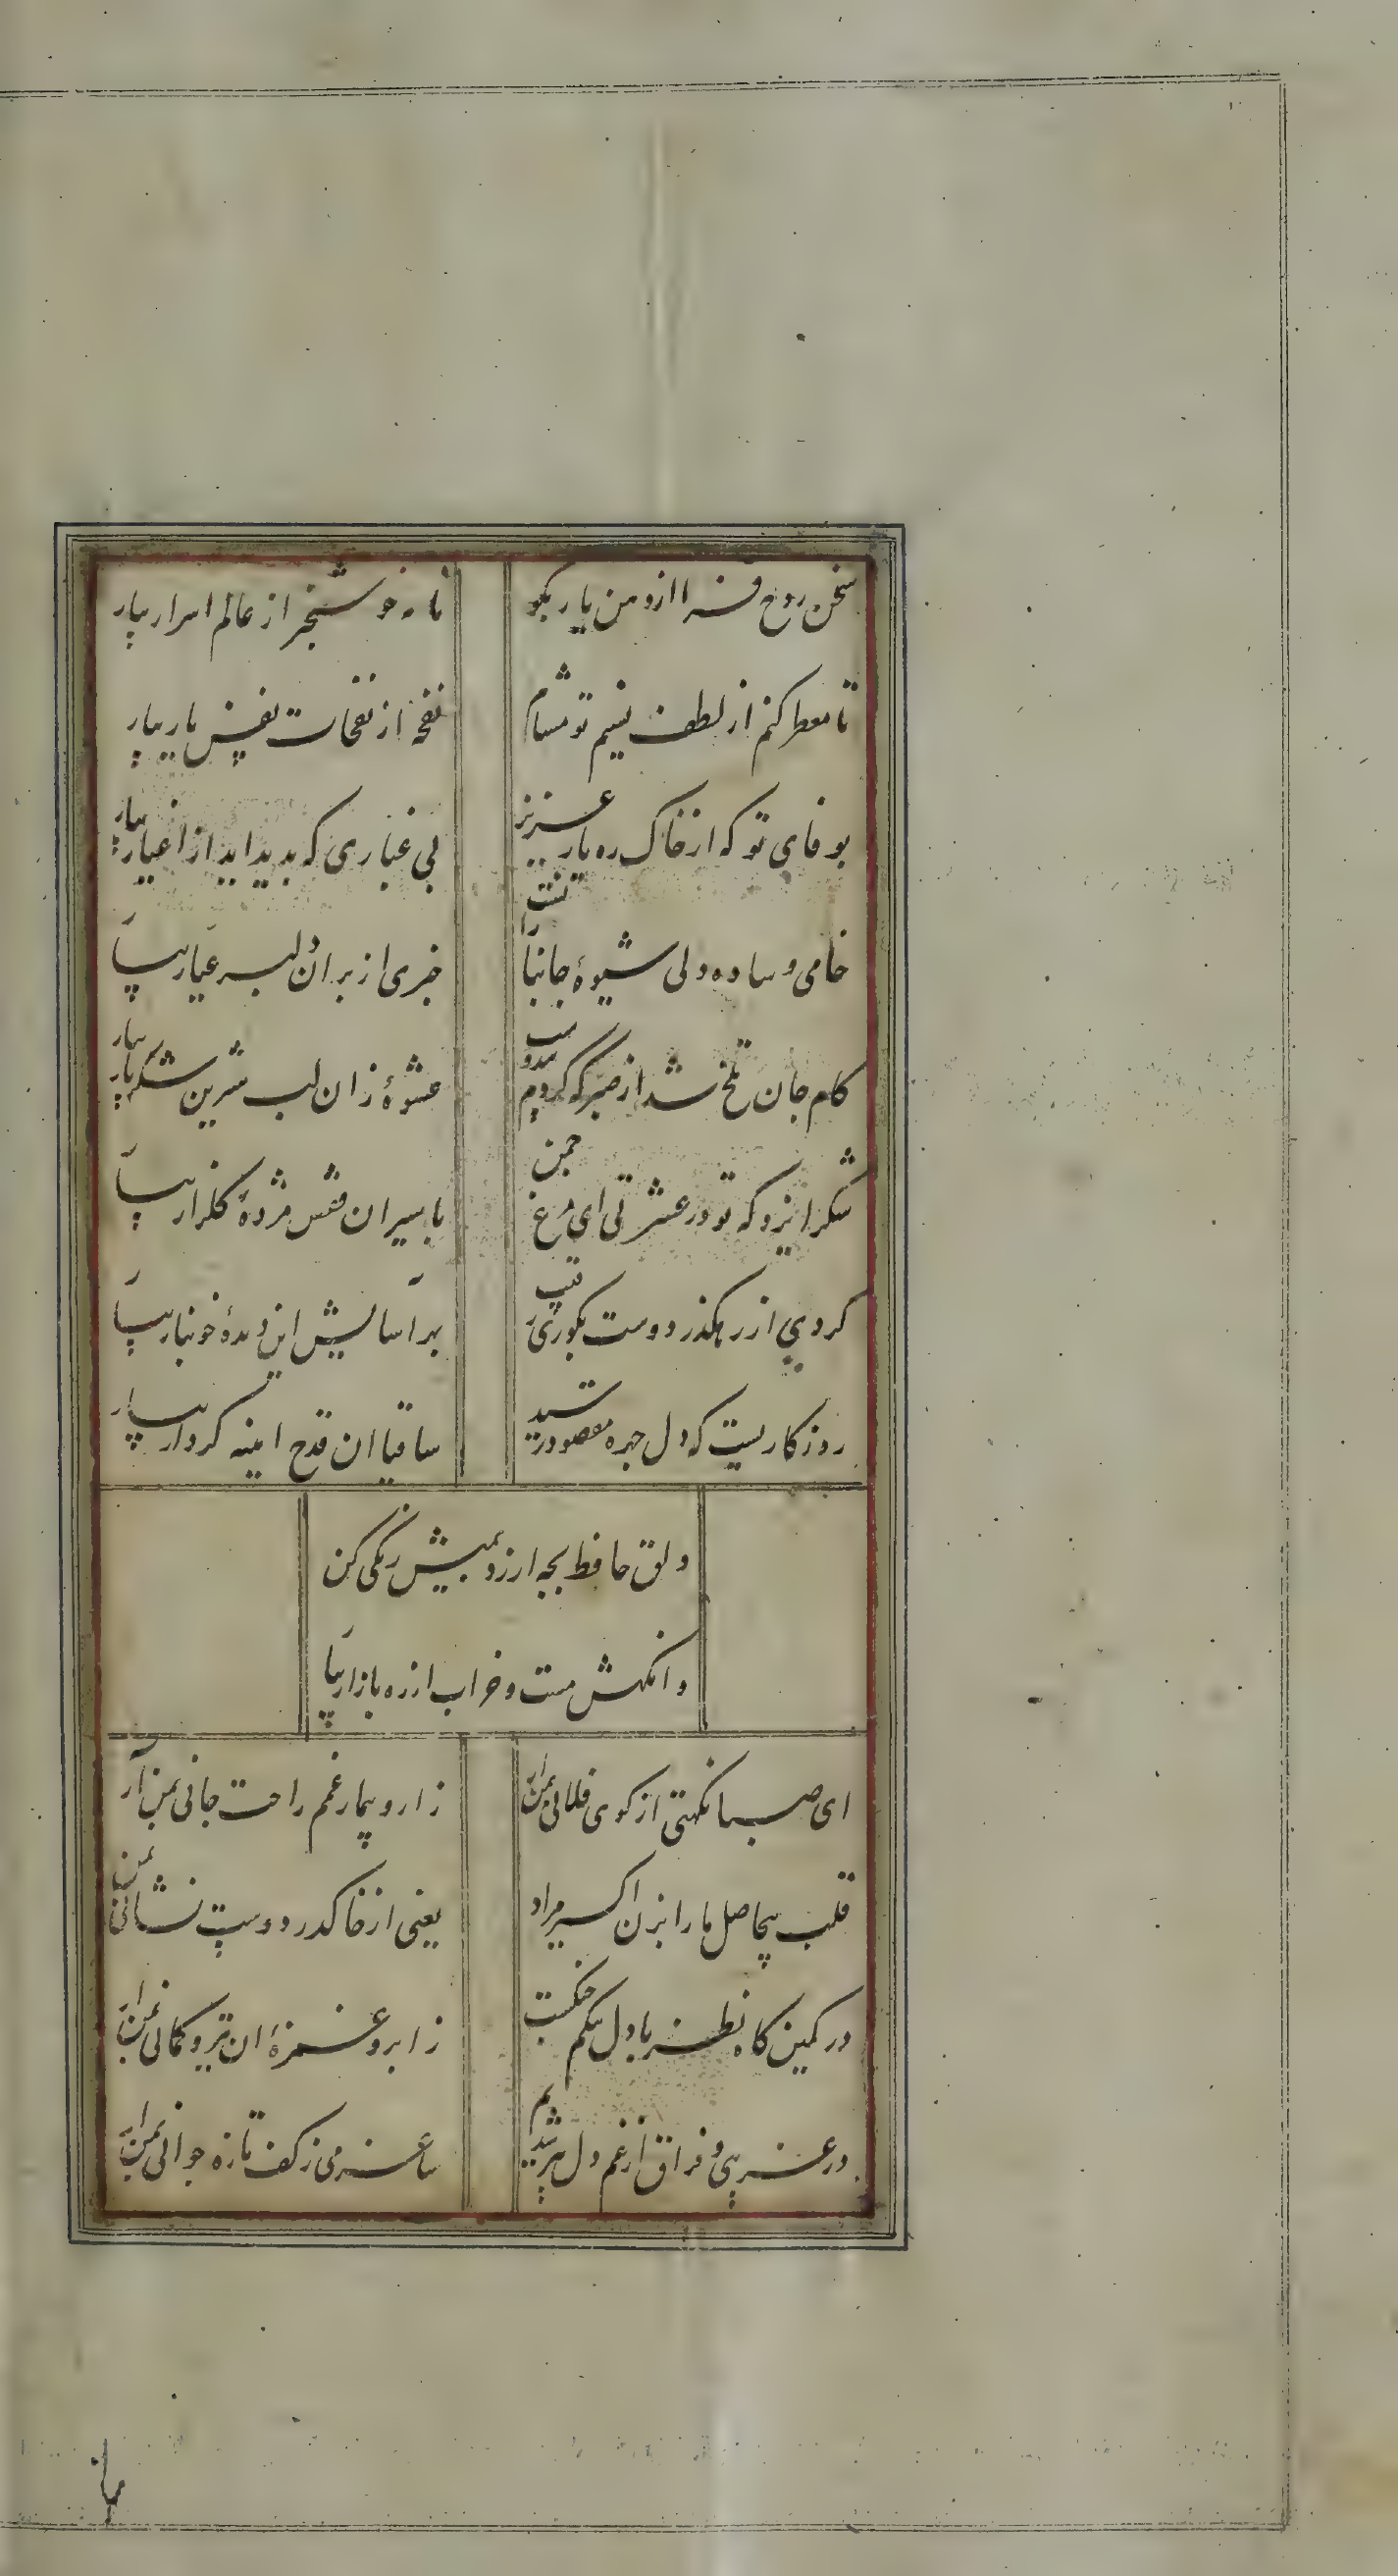 سخن روح فزا ازو من یار بکو
نامه خوشخبر از عالم اسرار بیار
تا معطر کنم از لطف نسیم تو مشام
نفحه از نفحات نفس یار بیار
بوفای تو که از خاک ره یار عزیز
بی غباری که بدید اید از اغیار بیار
خامی و ساده دلی شیوه جانبازان نیست
خبری از بر ان دلبر عیار بیار
کام جان تلخ شد از صبر که کردم بیدوست
عشوهٔ زان لب شیرین شکربار بیار
شکر ایزد که تو در عشرتی ای مرغ چمن
باسیران قفس مژدهٔ کلزار بیار
کردی از رهکذر دوست بکوری رقیب
بهر آسایش این دیدهٔ خونبار بیار
روزکاریست که دل چهره مقصود ندید
ساقیا ان قدح اینه کردار بیار
دلق حافظ بچه ارزد بمیش رنکی کن
وانکهش مست و خراب از ره بازار بیار
ای صبا نکهتی از کوی فلانی بمن آر
زار و بیمار غمم راحت جانی بمن آر
قلب بیحاصل ما را بزن اکسیر مراد
یعنی از خاکدر دوست نشانی بمن آر
در کمین کاه نظر با دل خویشم جنکست
زابرو و غمزهٔ ان تیر و کمانی بمن آر
در غریبی و فراق از غم دل پیر شدیم
ساغر می ز کف تازه جوانی بمن آر